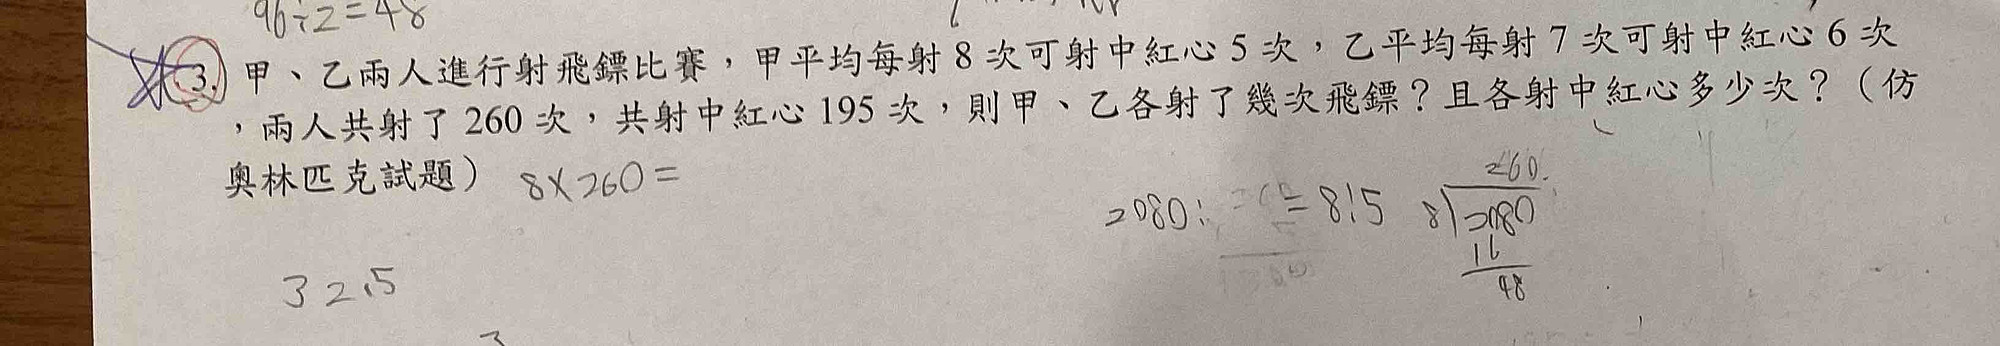 96÷2=48
3. 甲、乙兩人進行射飛鏢比賽，甲平均每射 8 次可射中紅心 5 次，乙平均每射 7 次可射中紅心 6 次
，兩人共射了 260 次，共射中紅心 195 次，則甲、乙各射了幾次飛鏢？且各射中紅心多少次？（仿
奧林匹克試題）
8×260=
2080: =8:5
260
8 2080
16
48
32.5